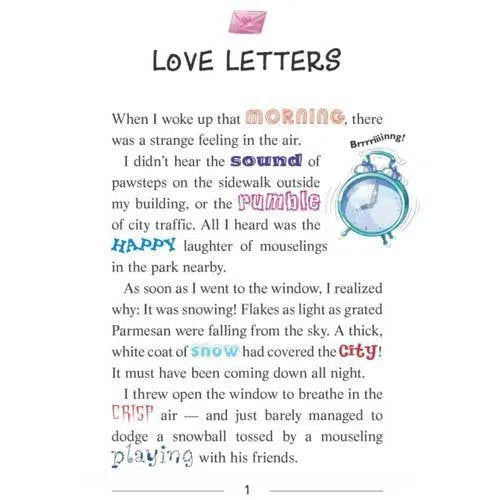 LOVE LETTERS
When I woke up that MORNING, there
was a strange feeling in the air.
Brrrriiiinng!
I didn't hear the sound of
pawsteps on the sidewalk outside
my building, or the rumble
of city traffic. All I heard was the
HAPPY laughter of mouselings
in the park nearby.
As soon as I went to the window, I realized
why: It was snowing! Flakes as light as grated
Parmesan were falling from the sky. A thick,
white coat of snow had covered the city!
It must have been coming down all night.
I threw open the window to breathe in the
CRISP air — and just barely managed to
dodge a snowball tossed by a mouseling
playing with his friends.
1